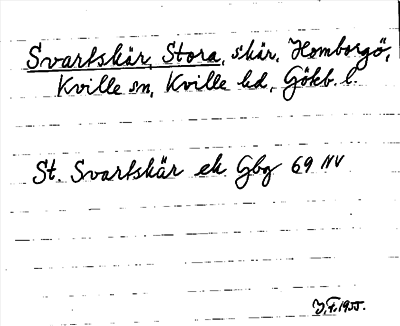 Svartskär, Stora, skär, Hamborgö,
Kville sn, Kville hd, Göteb. l.
St. Svartskär ek Gbg 69 NV
1955.